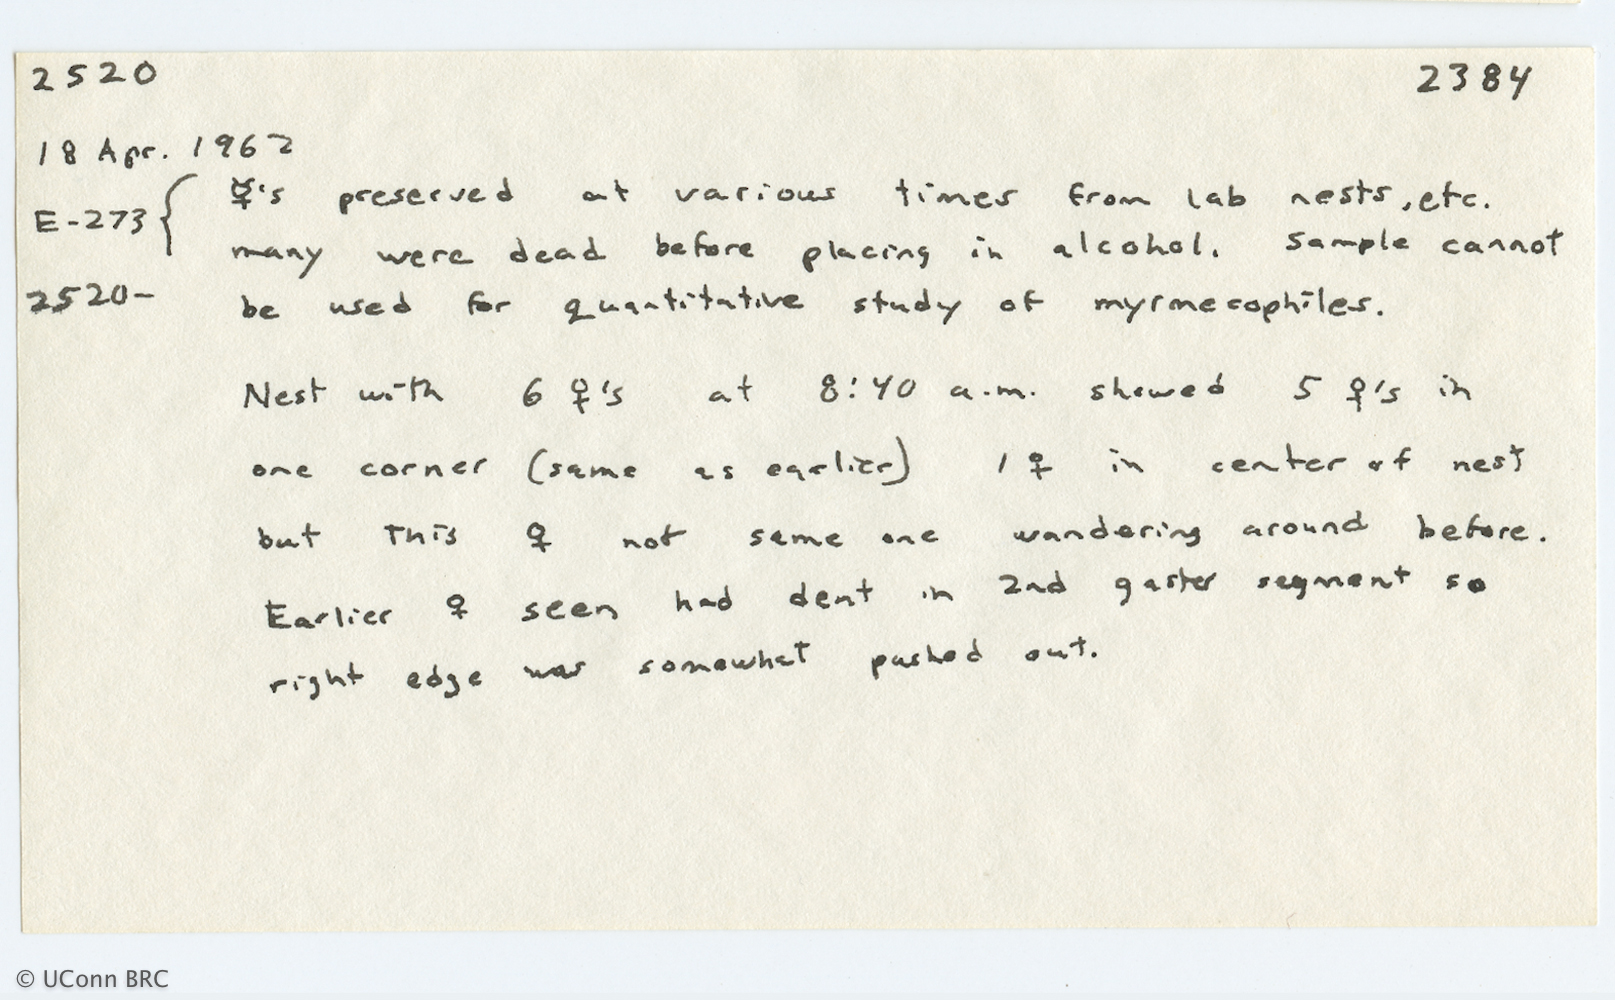 2520 2384
18 Apr. 1962
E-273 { ☿'s preserved at various times from lab nests, etc.
many were dead before placing in alcohol. Sample cannot
2520- be used for quantitative study of myrmecophiles.
Nest with 6 ♀'s at 8:40 a.m. showed 5 ♀'s in
one corner (same as earlier) 1 ♀ in center of nest
but this ♀ not same one wandering around before.
Earlier ♀ seen had dent in 2nd gaster segment so
right edge was somewhat pushed out.
© UConn BRC